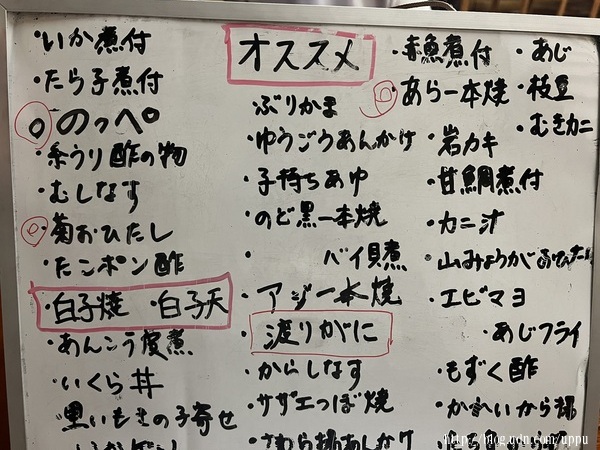 オススメ
・いか煮付
・たら子煮付
のっぺ
・糸うり酢の物
・むしなす
・菊おひたし
・たこポン酢
・白子焼 ・白子天
・あんこう
煮
・いくら丼
・ぶりかま
・ゆうごうあんかけ
・子持ちあゆ
・のど黒一本焼
・バイ貝煮
・アジ一本焼
・渡りがに
・からしなす
・サザエつぼ焼
・赤魚煮付
・あら一本焼
・岩カキ
・甘鯛煮付
・カニ汁
・山みょうが
・エビマヨ
・あじフライ
・もずく酢
・あじ
・枝豆
・むきカニ
http://blog.udn.com/uppu